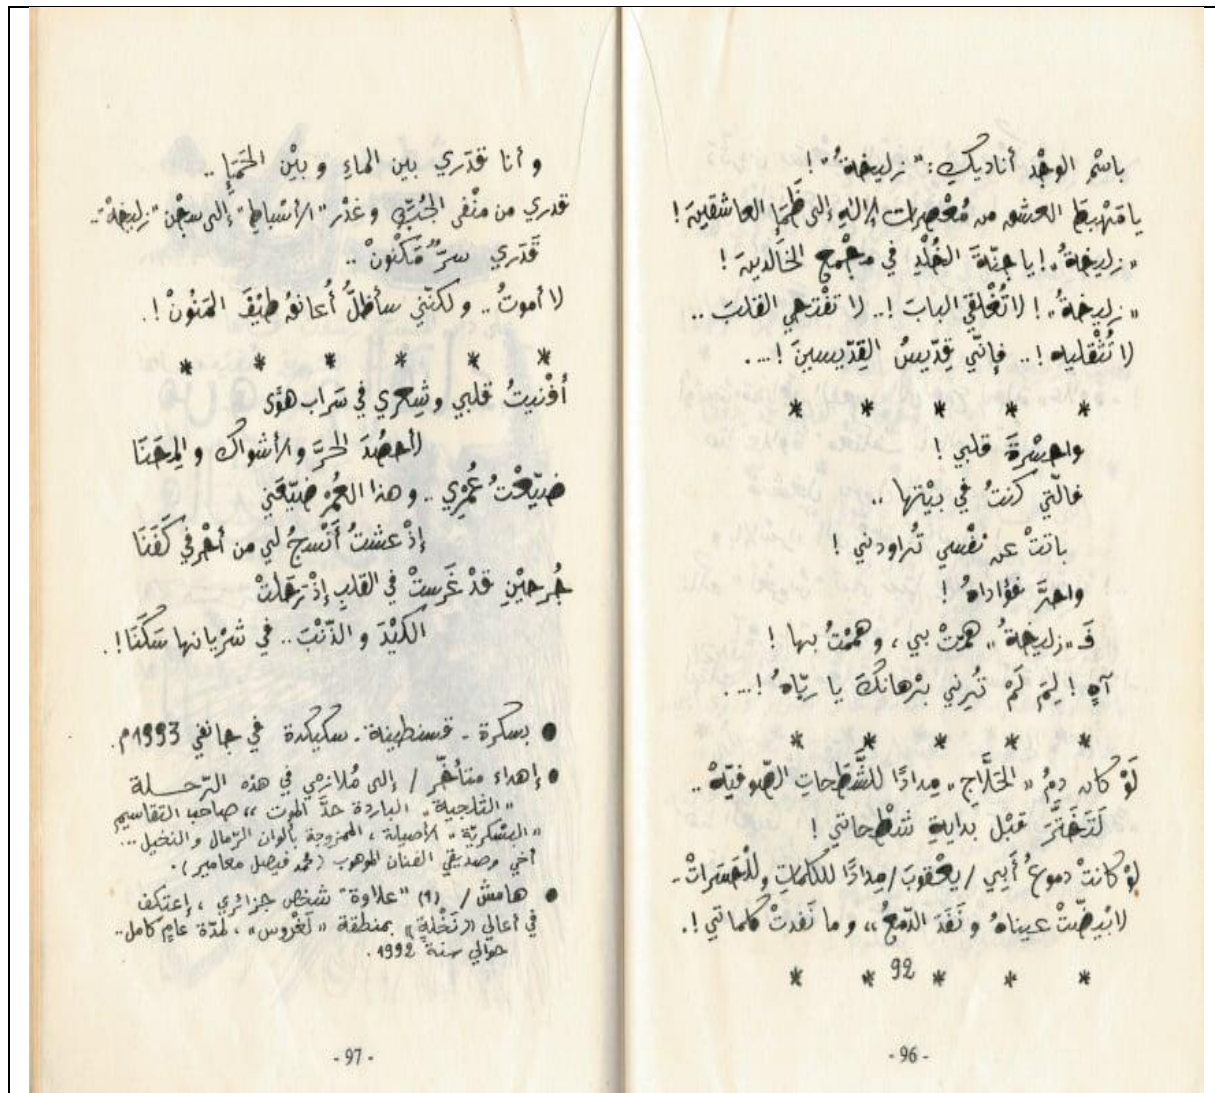 باسْمِ الوجْد أناديكِ: "زليخةُ" !
يا مَهْبِطَ العشق من مُعْصِراتِ الإلهِ إلى ظَمَإِ العاشقينَ !
« زليخةُ » ! يا جنّةَ الخُلْدِ في مجْمع الخالدينَ !
« زليخةُ » ! لا تُغْلقي البابَ !.. لا تفْتحي القلبَ ..
لا تُثْقليه !.. فإنّي قِدّيسُ القِدّيسينَ !...
* * * * *
واحسْرةَ قلبي !
فالّتي كنتُ في بيْتها ..
باتتْ عن نفْسي تُراودني !
واحرَّ فؤاداهُ !
فَـ « زليخةُ » همّتْ بي ، وهممْتُ بها !
آهِ ! لِمَ لَمْ تُرِني برْهانكَ يا ربّاهُ !...
* * * * *
لَوْ كان دمُ « الحَلَّاجِ » مِدادًا للشَّطَحاتِ الصّوفيّهْ ..
لَتَخَثَّرَ قبْل بدايةِ شطْحاتي !
لوْ كانتْ دموعُ أبي / يعْقوبَ / مِدادًا للكلماتِ وللْحَسَراتْ ..
لابْيضّتْ عيناهُ و نَفَدَ الدّمعُ ،، و ما نَفدتْ كلماتي !.
* * 92 * * *
- 96 -
و أنا قدَري بين الماءِ و بيْن الحَمَإِ ..
قدري من منْفى الجُبِّ و غدْر "الأسْباطِ" إلى سجْن "زليخهْ" ..
قَدَري سرٌّ مَكْنُونْ ..
لا أموتُ .. و لكنّني سأظلُّ أُعانقُ طيْفَ المَنُونْ !.
* * * * * *
أفْنيتُ قلبي وشِعري في سَراب هوًى
لأحصُدَ الحَرَّ و الأشواك و المِحَنَا
ضيّعْتُ عُمْري .. و هذا العُمْرُ ضيّعَني
إذْ عشتُ أنْسجُ لي من أحْرفي كَفَنَا
جُرحيْنِ قدْ غَرَستْ في القلبِ إذْ رَحَلتْ
الكيْدَ و الذّنْبَ .. في شرْيانها سَكَنَا !.
● بسكرة - قسنطينة - سكيكدة في جانفي 1993م.
● إهداء متأخّر / إلى مُلازمي في هذه الرّحــلـة
« الثلجية » الباردة حدَّ الموت ،، صاحب التقاسيم
« البسْكريّة » الأصيلة ، الممزوجة بألوان الرّمال و النخيل ...
أخي وصديقي الفنان الموهوب (محمد فيصل معامير ).
● هامش / (1) "علاوة" شخص جزائري ، إعتكف
في أعالي «نَخْلةٍ» بمنطقة « لَغْروس » ، لمدّة عامٍ كامل ..
حوالي سنة 1992 .
- 97 -